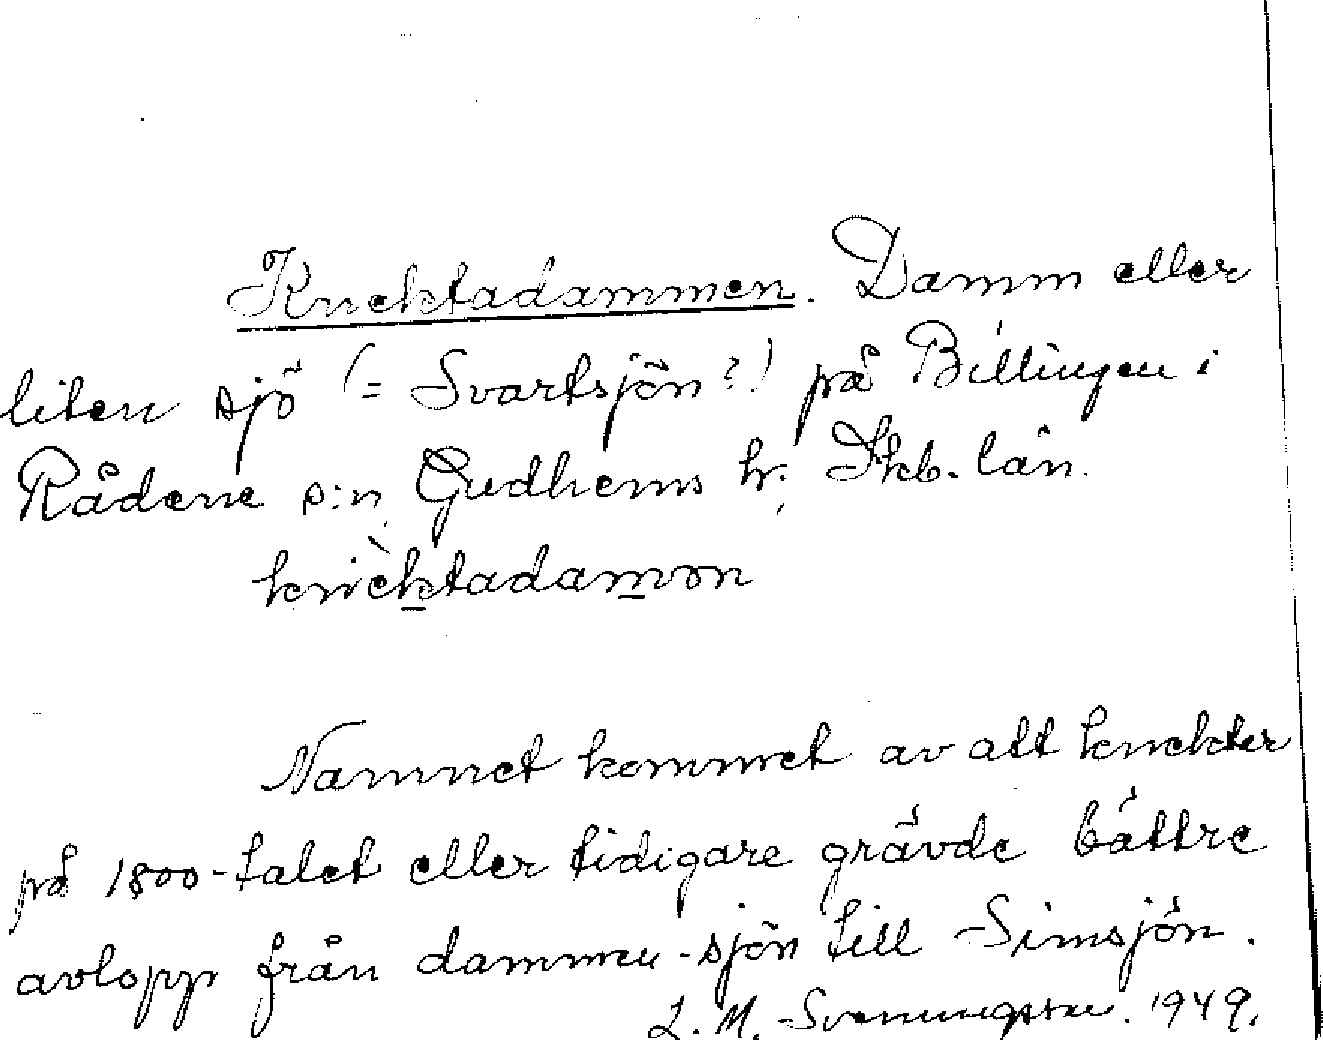 Knektadammen. Damm eller
liten sjö (= Svartsjön?) på Billingen i
Rådene s:n, Gudhems h:, Skb. län.
knèktadamon
Namnet kommet av att knekter
på 1800-talet eller tidigare grävde bättre
avlopp från dammen-sjön till Simsjön.
L. M. Svenungsson. 1949.